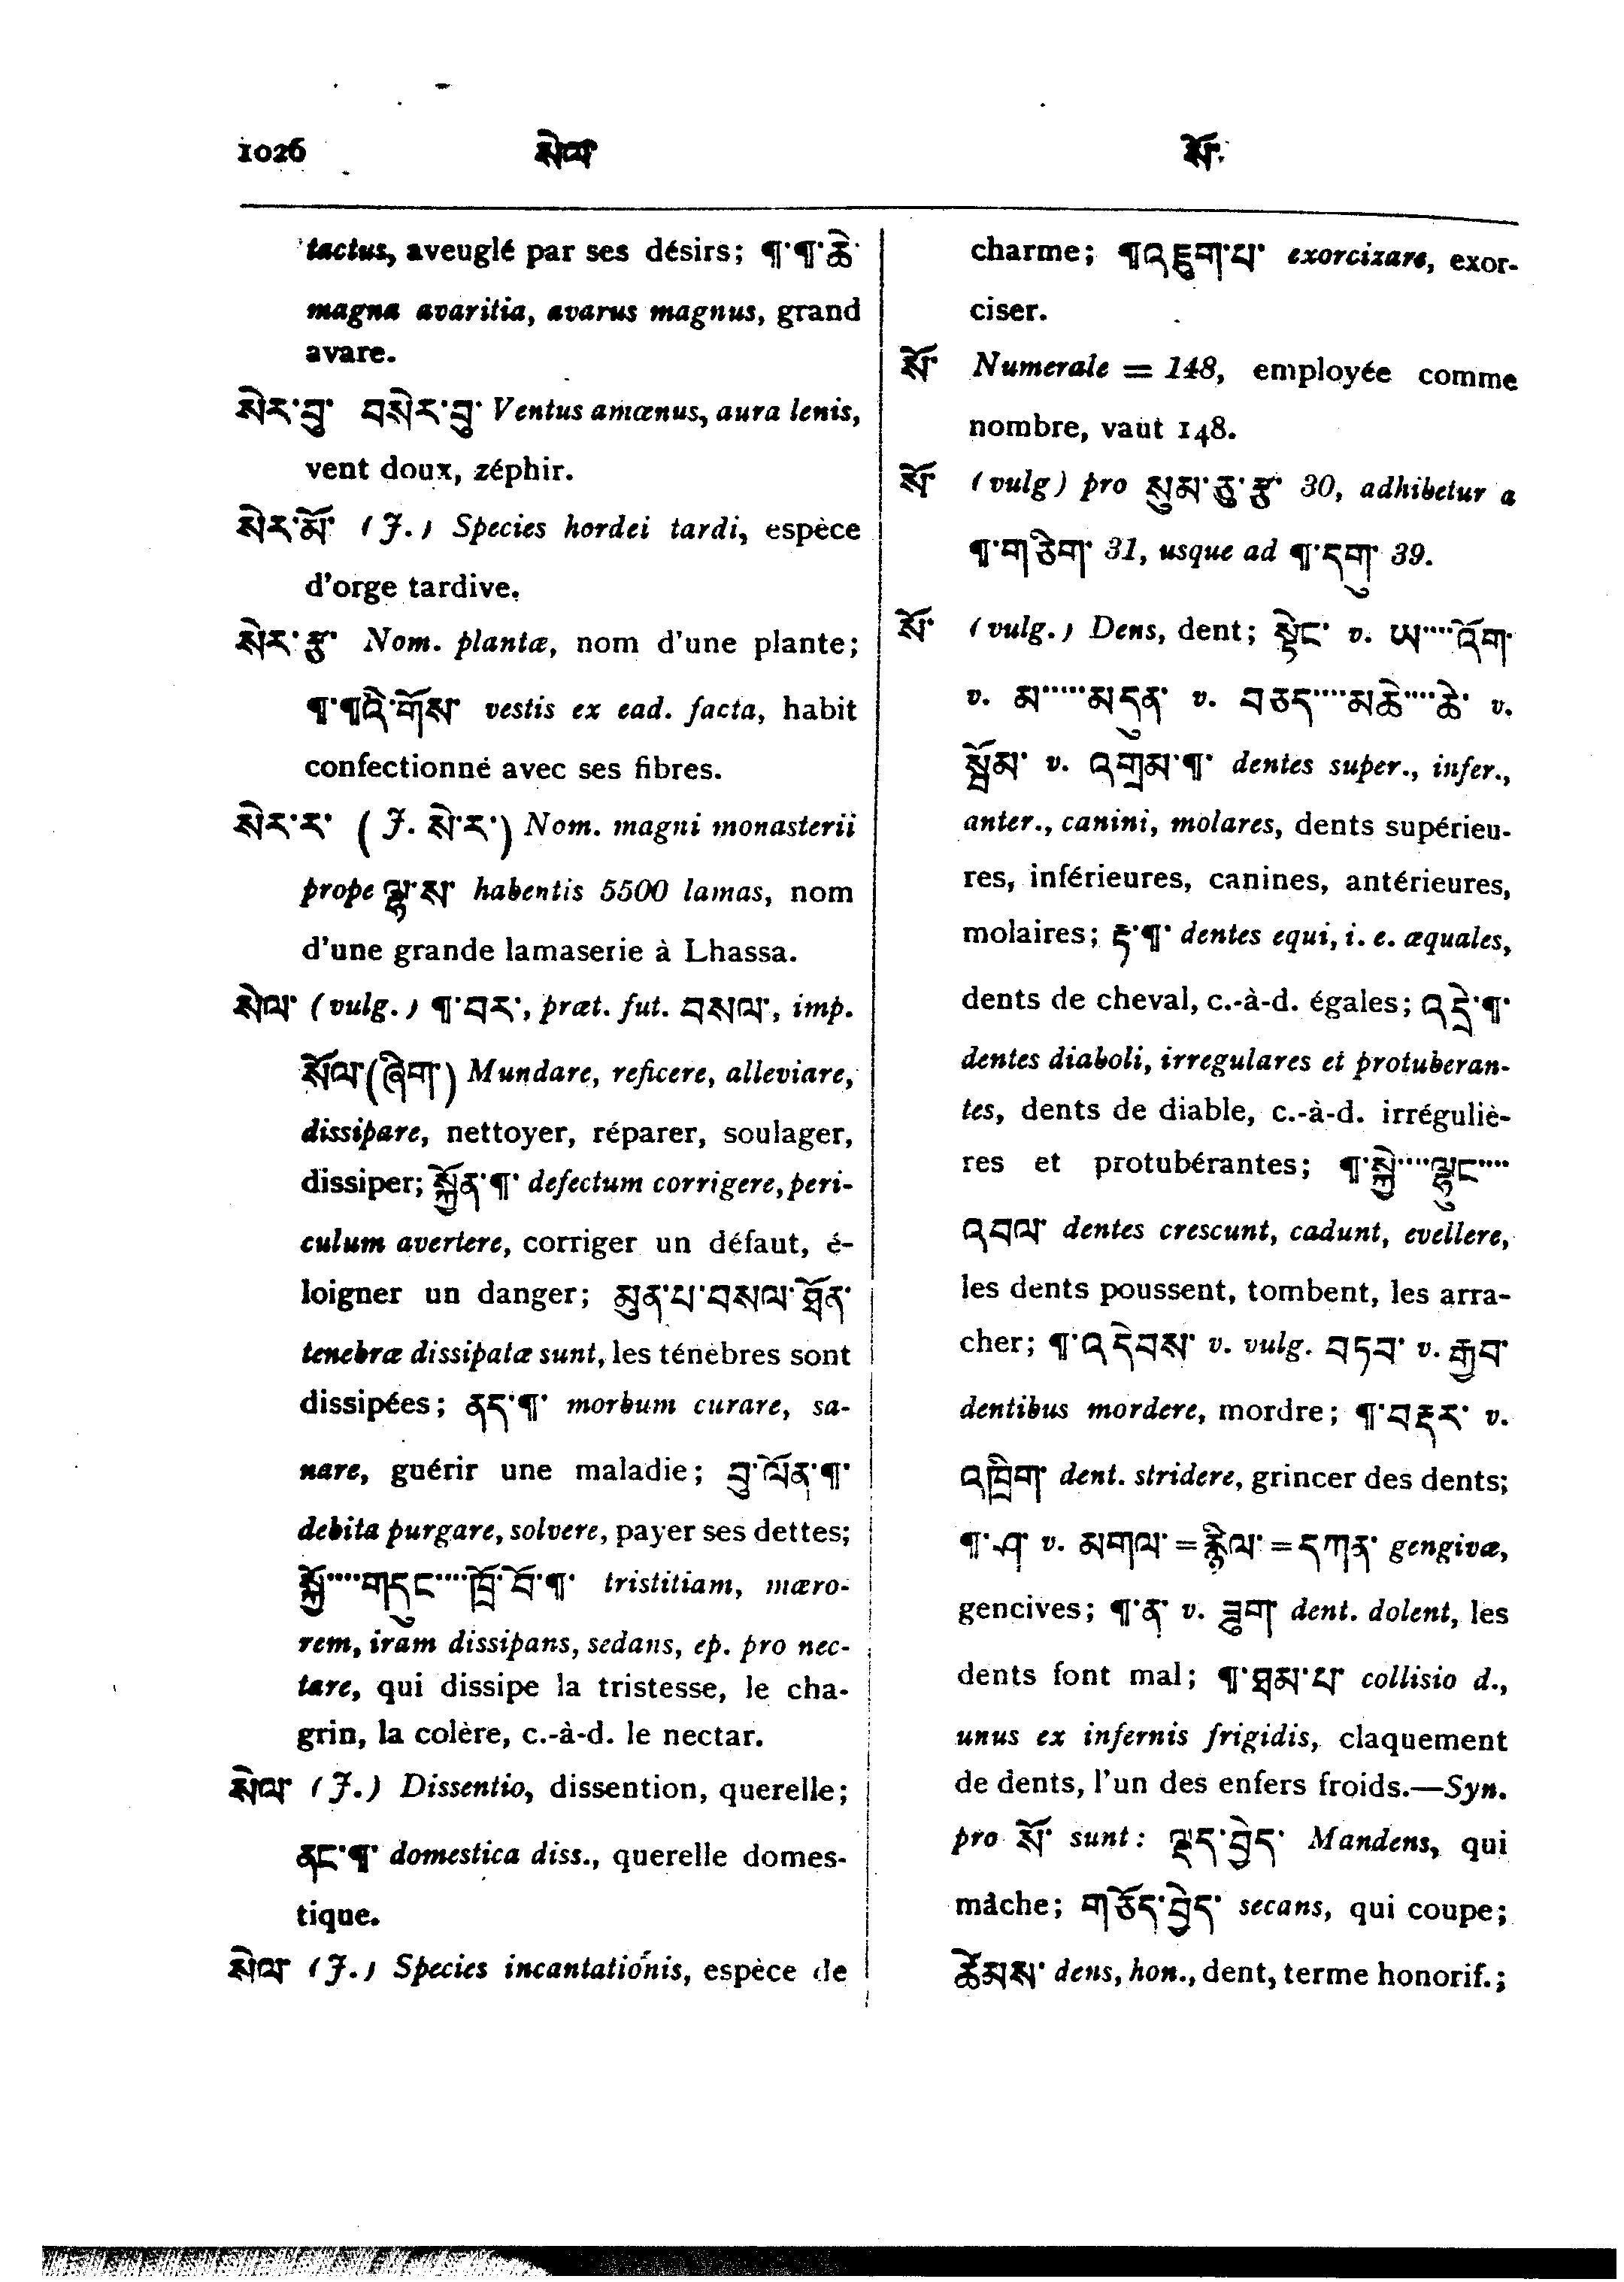 1026 སེལ་ སོ་
tactus, aveuglé par ses désirs; ¶་¶་ཆེ་
magna avaritia, avarus magnus, grand
avare.
སེར་བུ་ བསེར་བུ་ Ventus amœnus, aura lenis,
vent doux, zéphir.
སེར་མོ་ (J.) Species hordei tardi, espèce
d'orge tardive.
སེར་རྩ་ Nom. plantæ, nom d'une plante;
¶་¶འི་གོས་ vestis ex ead. facta, habit
confectionné avec ses fibres.
སེར་ར་ (J. སེ་ར་) Nom. magni monasterii
prope ལྷ་ས་ habentis 5500 lamas, nom
d'une grande lamaserie à Lhassa.
སེལ་ (vulg.) ¶་བར་, præt. fut. བསལ་, imp.
སོལ་(ཞིག་) Mundare, reficere, alleviare,
dissipare, nettoyer, réparer, soulager,
dissiper; སྐྱོན་¶་ defectum corrigere, peri-
culum avertere, corriger un défaut, é-
loigner un danger; མུན་པ་བསལ་ཐོན་
tenebræ dissipatæ sunt, les ténèbres sont
dissipées; ནད་¶་ morbum curare, sa-
nare, guérir une maladie; བུ་ལོན་¶་
debita purgare, solvere, payer ses dettes;
སྐྱོ་····གདུང་····ཁྲོ་བོ་¶་ tristitiam, mæro-
rem, iram dissipans, sedans, ep. pro nec-
tare, qui dissipe la tristesse, le cha-
grin, la colère, c.-à-d. le nectar.
སེལ་ (J.) Dissentio, dissention, querelle;
ནང་¶་ domestica diss., querelle domes-
tique.
སེལ་ (J.) Species incantationis, espèce de
charme; ¶འཇུག་པ་ exorcizare, exor-
ciser.
སོ་ Numerale = 148, employée comme
nombre, vaut 148.
སོ་ (vulg) pro སུམ་ཅུ་རྩ་ 30, adhibetur a
¶་གཅིག་ 31, usque ad ¶་དགུ་ 39.
སོ་ (vulg.) Dens, dent; སྟེང་ v. ཡ་····འོག་
v. མ་·····མདུན་ v. བཅད་····མཆེ་····ཆེ་ v.
སྦོམ་ v. འགྲམ་¶་ dentes super., infer.,
anter., canini, molares, dents supérieu-
res, inférieures, canines, antérieures,
molaires; རྟ་¶་ dentes equi, i. e. æquales,
dents de cheval, c.-à-d. égales; འདྲེ་¶་
dentes diaboli, irregulares et protuberan-
tes, dents de diable, c.-à-d. irréguliè-
res et protubérantes; ¶་སྐྱེ་····ལྷུང་····
འབལ་ dentes crescunt, cadunt, evellere,
les dents poussent, tombent, les arra-
cher; ¶་འདེབས་ v. vulg. བཏབ་ v. རྒྱབ་
dentibus mordere, mordre; ¶་བརྡར་ v.
འཁྲིག་ dent. stridere, grincer des dents;
¶་ཤ་ v. མགལ་ = རྙིལ་ = དཀན་ gengivæ,
gencives; ¶་ན་ v. ཟུག་ dent. dolent, les
dents font mal; ¶་ཐམ་པ་ collisio d.,
unus ex infernis frigidis, claquement
de dents, l'un des enfers froids.—Syn.
pro སོ་ sunt: ལྡད་བྱེད་ Mandens, qui
mâche; གཅོད་བྱེད་ secans, qui coupe;
ཚེམས་ dens, hon., dent, terme honorif.;